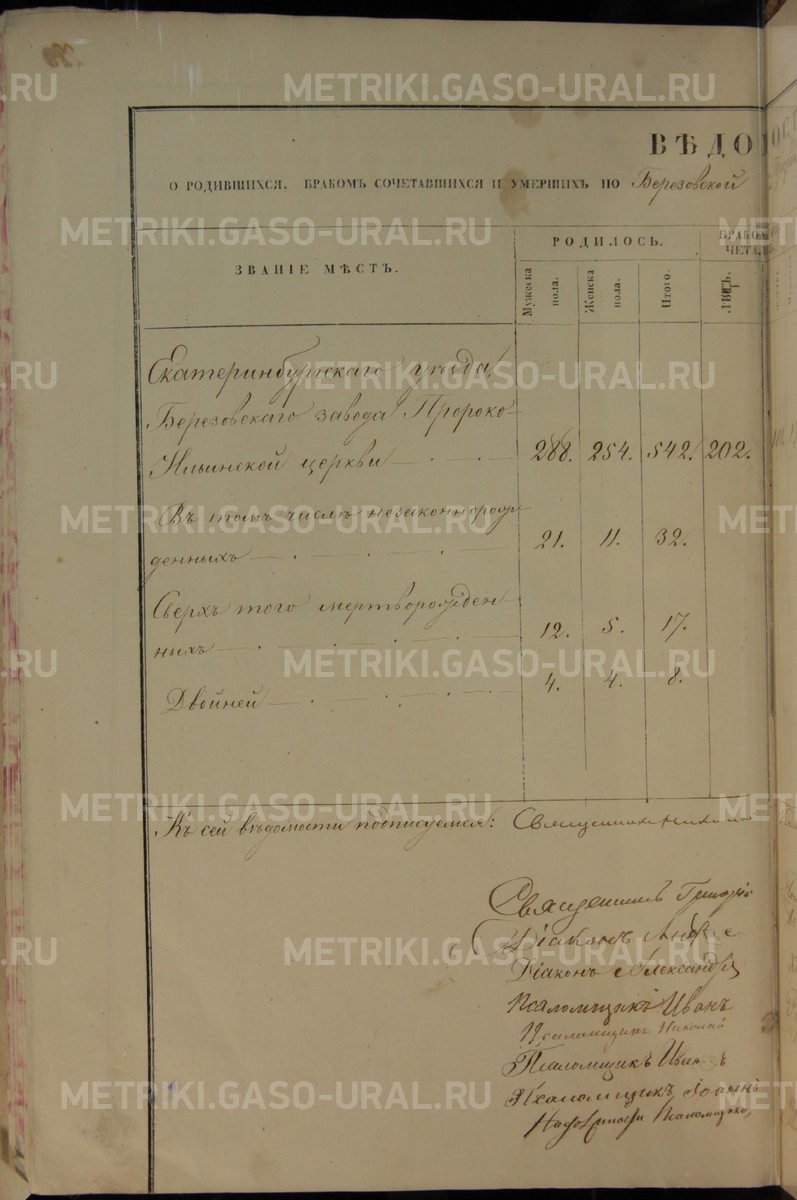 ВѢДО
О РОДИВШИХСЯ, БРАКОМЪ СОЧЕТАВШИХСЯ И УМЕРШИХЪ ПО Березовской
ЗВАНІЕ МѢСТЪ.
РОДИЛОСЬ.
БРАКО
ЧЕТАЛ
Мужеска пола.
Женска пола.
Итого.
Екатеринбургскаго уѣзда,
Березовскаго завода Пророко-
Ильинской церкви 288. 254. 542. 202.
Въ томъ числѣ незаконнорож
денныхъ 21. 11. 32.
Сверхъ того мертворожден
ныхъ 12. 5. 17.
Двойней 4. 4. 8.
Къ сей вѣдомости подписуемся: Священникъ
Священникъ
Діаконъ
Діаконъ Александр
Псаломщикъ Иванъ
Псаломщикъ Николай
Псаломщикъ Иван
Псаломщикъ Іоаннъ
Псаломщика
METRIKI.GASO-URAL.RU